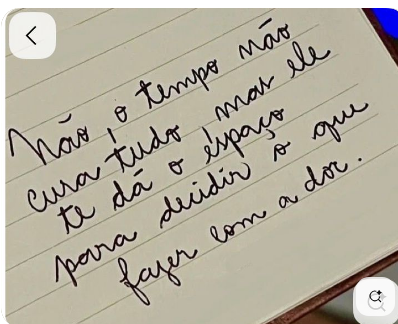 Não, o tempo não
cura tudo mas ele
te dá o espaço
para decidir o que
fazer com a dor.